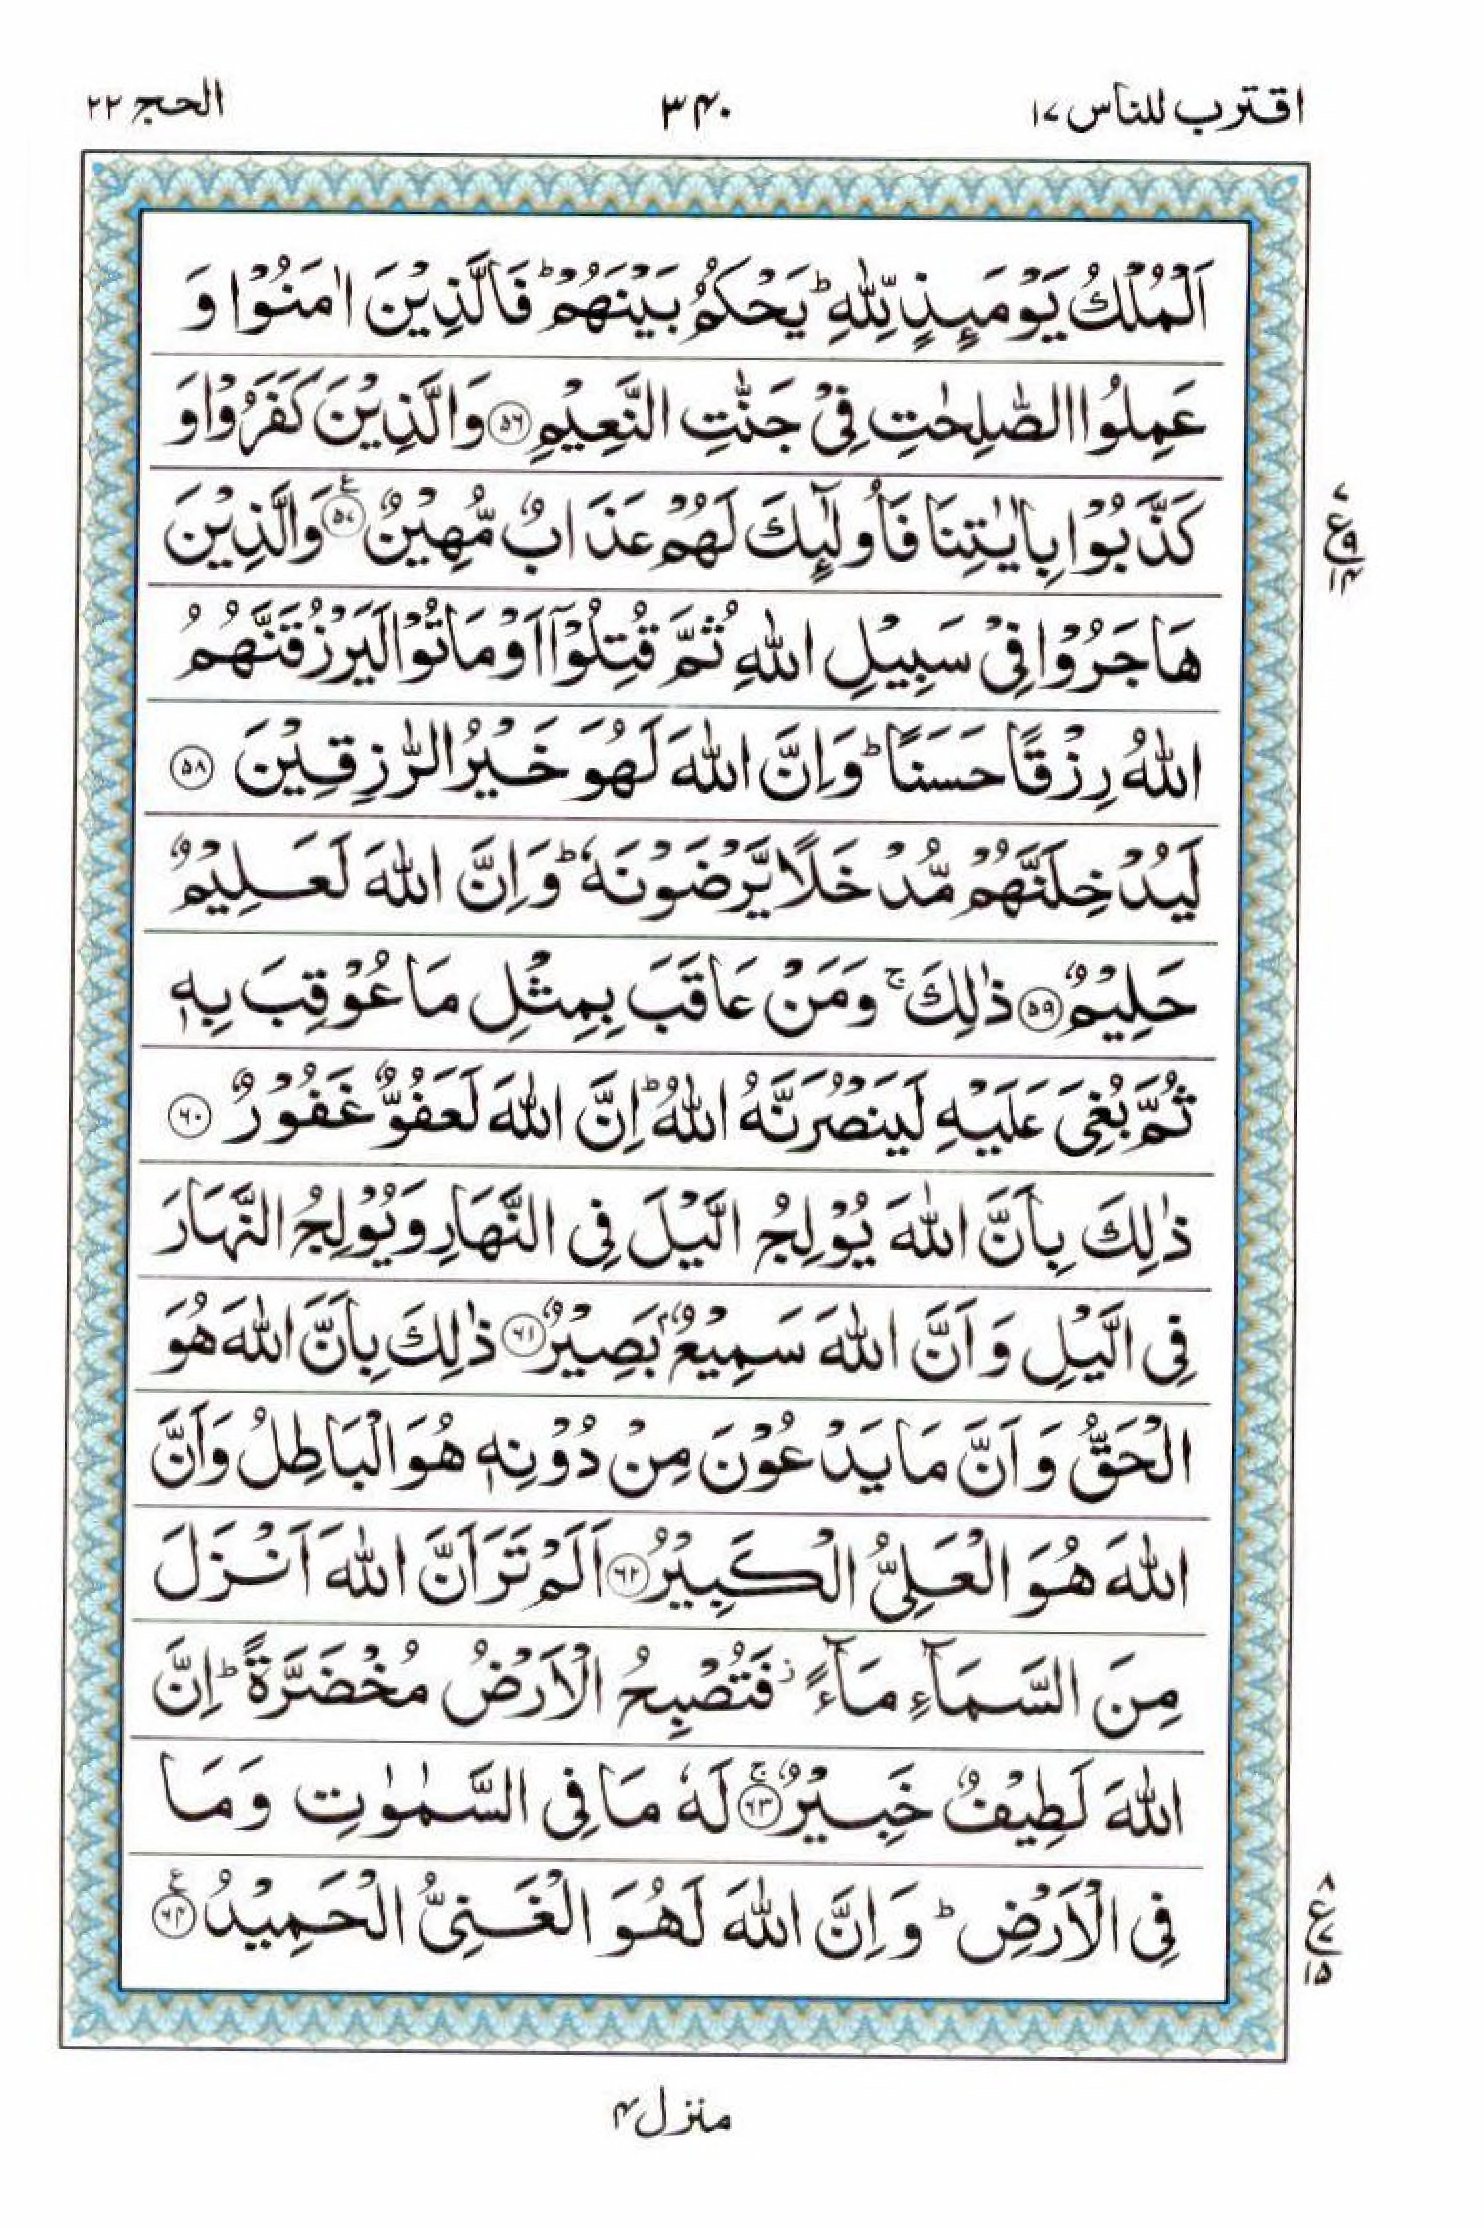 اقترب للناس ۱۷
۳۴۰
الحج ۲۲
اَلْمُلْكُ يَوْمَىِٕذٍ لِّلّٰهِ ؕ يَحْكُمُ بَيْنَهُمْ ؕ فَالَّذِيْنَ اٰمَنُوْا وَ
عَمِلُوا الصّٰلِحٰتِ فِىْ جَنّٰتِ النَّعِيْمِ ﴿۵۶﴾ وَالَّذِيْنَ كَفَرُوْا وَ
كَذَّبُوْا بِاٰيٰتِنَا فَاُولٰٓىِٕكَ لَهُمْ عَذَابٌ مُّهِيْنٌ ﴿۵۷﴾ ع وَالَّذِيْنَ
۷
ع
۹
۱۴
هَاجَرُوْا فِىْ سَبِيْلِ اللّٰهِ ثُمَّ قُتِلُوْۤا اَوْ مَاتُوْا لَيَرْزُقَنَّهُمُ
اللّٰهُ رِزْقًا حَسَنًا ؕ وَاِنَّ اللّٰهَ لَهُوَ خَيْرُ الرّٰزِقِيْنَ ﴿۵۸﴾
لَيُدْخِلَنَّهُمْ مُّدْخَلًا يَّرْضَوْنَهٗ ؕ وَاِنَّ اللّٰهَ لَعَلِيْمٌ
حَلِيْمٌ ﴿۵۹﴾ ذٰلِكَ ۚ وَمَنْ عَاقَبَ بِمِثْلِ مَا عُوْقِبَ بِهٖ
ثُمَّ بُغِىَ عَلَيْهِ لَيَنْصُرَنَّهُ اللّٰهُ ؕ اِنَّ اللّٰهَ لَعَفُوٌّ غَفُوْرٌ ﴿۶۰﴾
ذٰلِكَ بِاَنَّ اللّٰهَ يُوْلِجُ الَّيْلَ فِى النَّهَارِ وَيُوْلِجُ النَّهَارَ
فِى الَّيْلِ وَاَنَّ اللّٰهَ سَمِيْعٌۢ بَصِيْرٌ ﴿۶۱﴾ ذٰلِكَ بِاَنَّ اللّٰهَ هُوَ
الْحَقُّ وَاَنَّ مَا يَدْعُوْنَ مِنْ دُوْنِهٖ هُوَ الْبَاطِلُ وَاَنَّ
اللّٰهَ هُوَ الْعَلِىُّ الْكَبِيْرُ ﴿۶۲﴾ اَلَمْ تَرَ اَنَّ اللّٰهَ اَنْزَلَ
مِنَ السَّمَآءِ مَآءً ز فَتُصْبِحُ الْاَرْضُ مُخْضَرَّةً ؕ اِنَّ
اللّٰهَ لَطِيْفٌ خَبِيْرٌ ﴿۶۳﴾ ۚ لَهٗ مَا فِى السَّمٰوٰتِ وَمَا
فِى الْاَرْضِ ؕ وَاِنَّ اللّٰهَ لَهُوَ الْغَنِىُّ الْحَمِيْدُ ﴿۶۴﴾ ع
۸
ع
۷
۱۵
منزل ۴